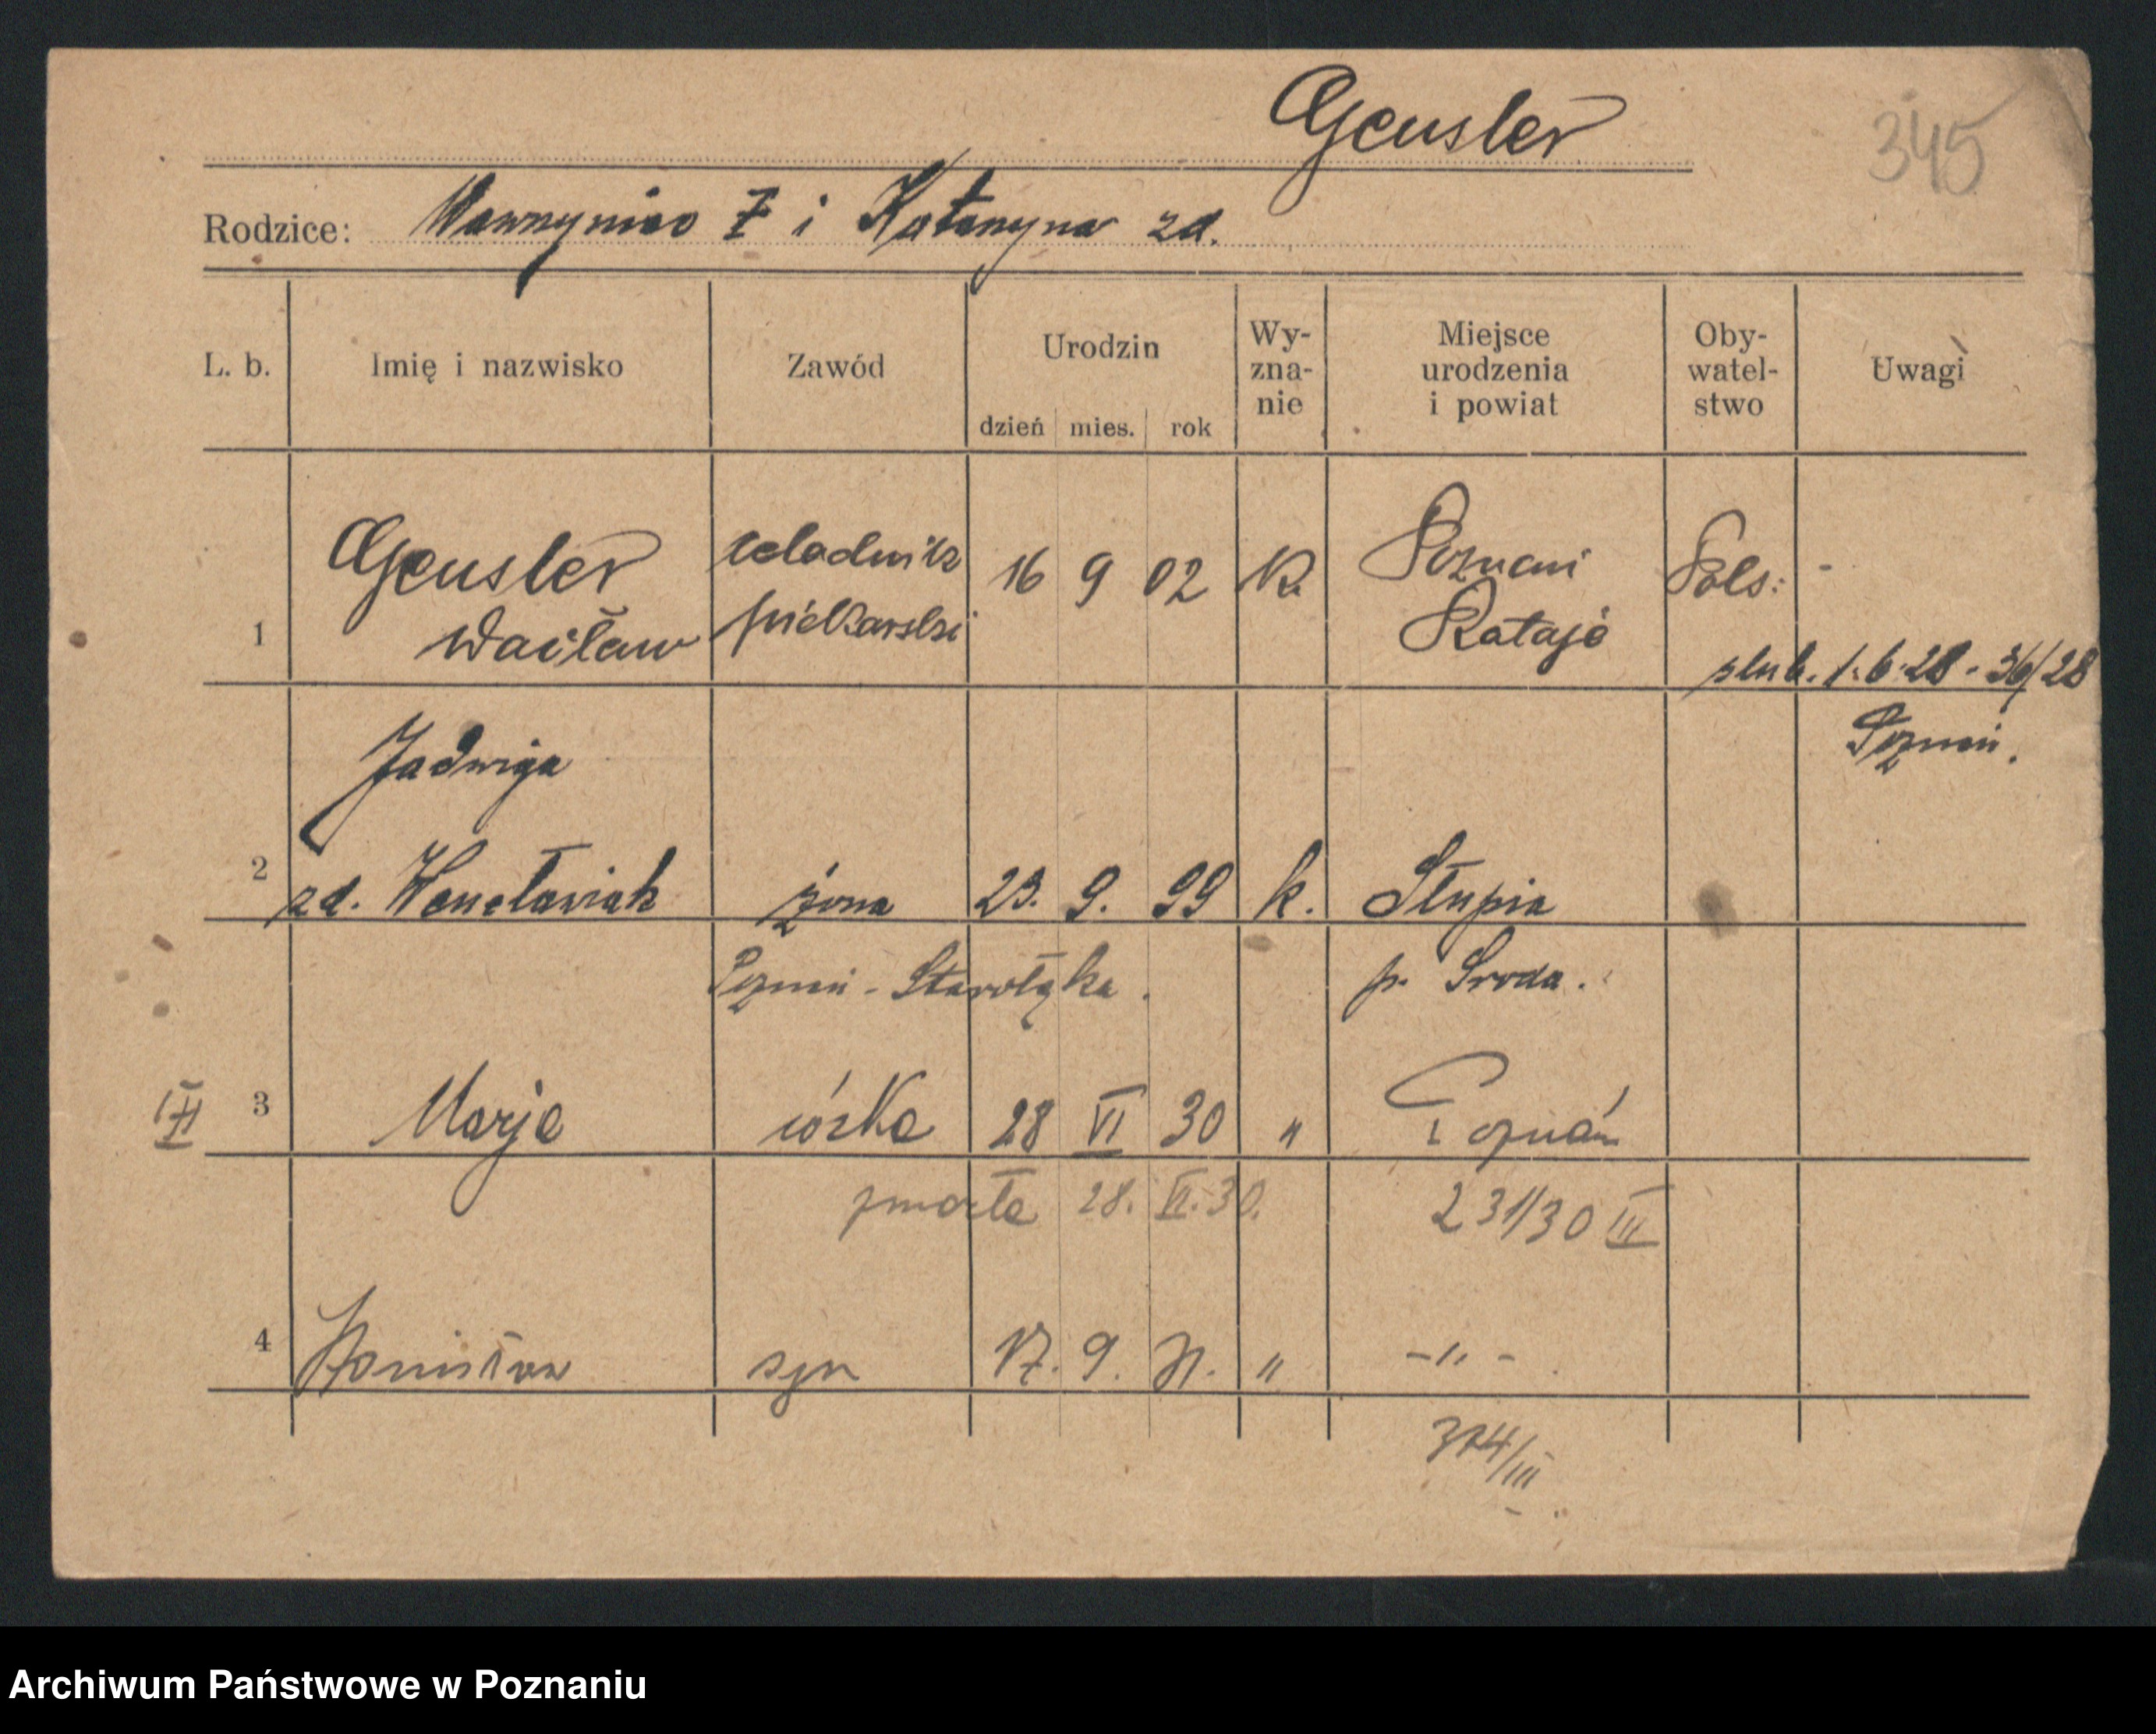 Geusler
345
Rodzice: Wawrzyniec i Katarzyna zd.
L. b. Imię i nazwisko Zawód Urodzin dzień mies. rok Wy-zna-nie Miejsce urodzenia i powiat Oby-watel-stwo Uwagi
Geusler czeladnik 16 9 02 K. Poznań Pols: -
1 Wacław piekarski Rataje
ślub. 1.6.28 - 36/28
Poznań.
Jadwiga
2 zd. Wencławiak żona 23. 9. 99 k. Słupia
Poznań - Starołęka. p. Środa.
3 Marja córka 28 VI 30 " Poznań
zmarła 28. VI. 30. 231/30 III
4 Stanisław syn 17. 9. 31. " -"-
374/III
Archiwum Państwowe w Poznaniu